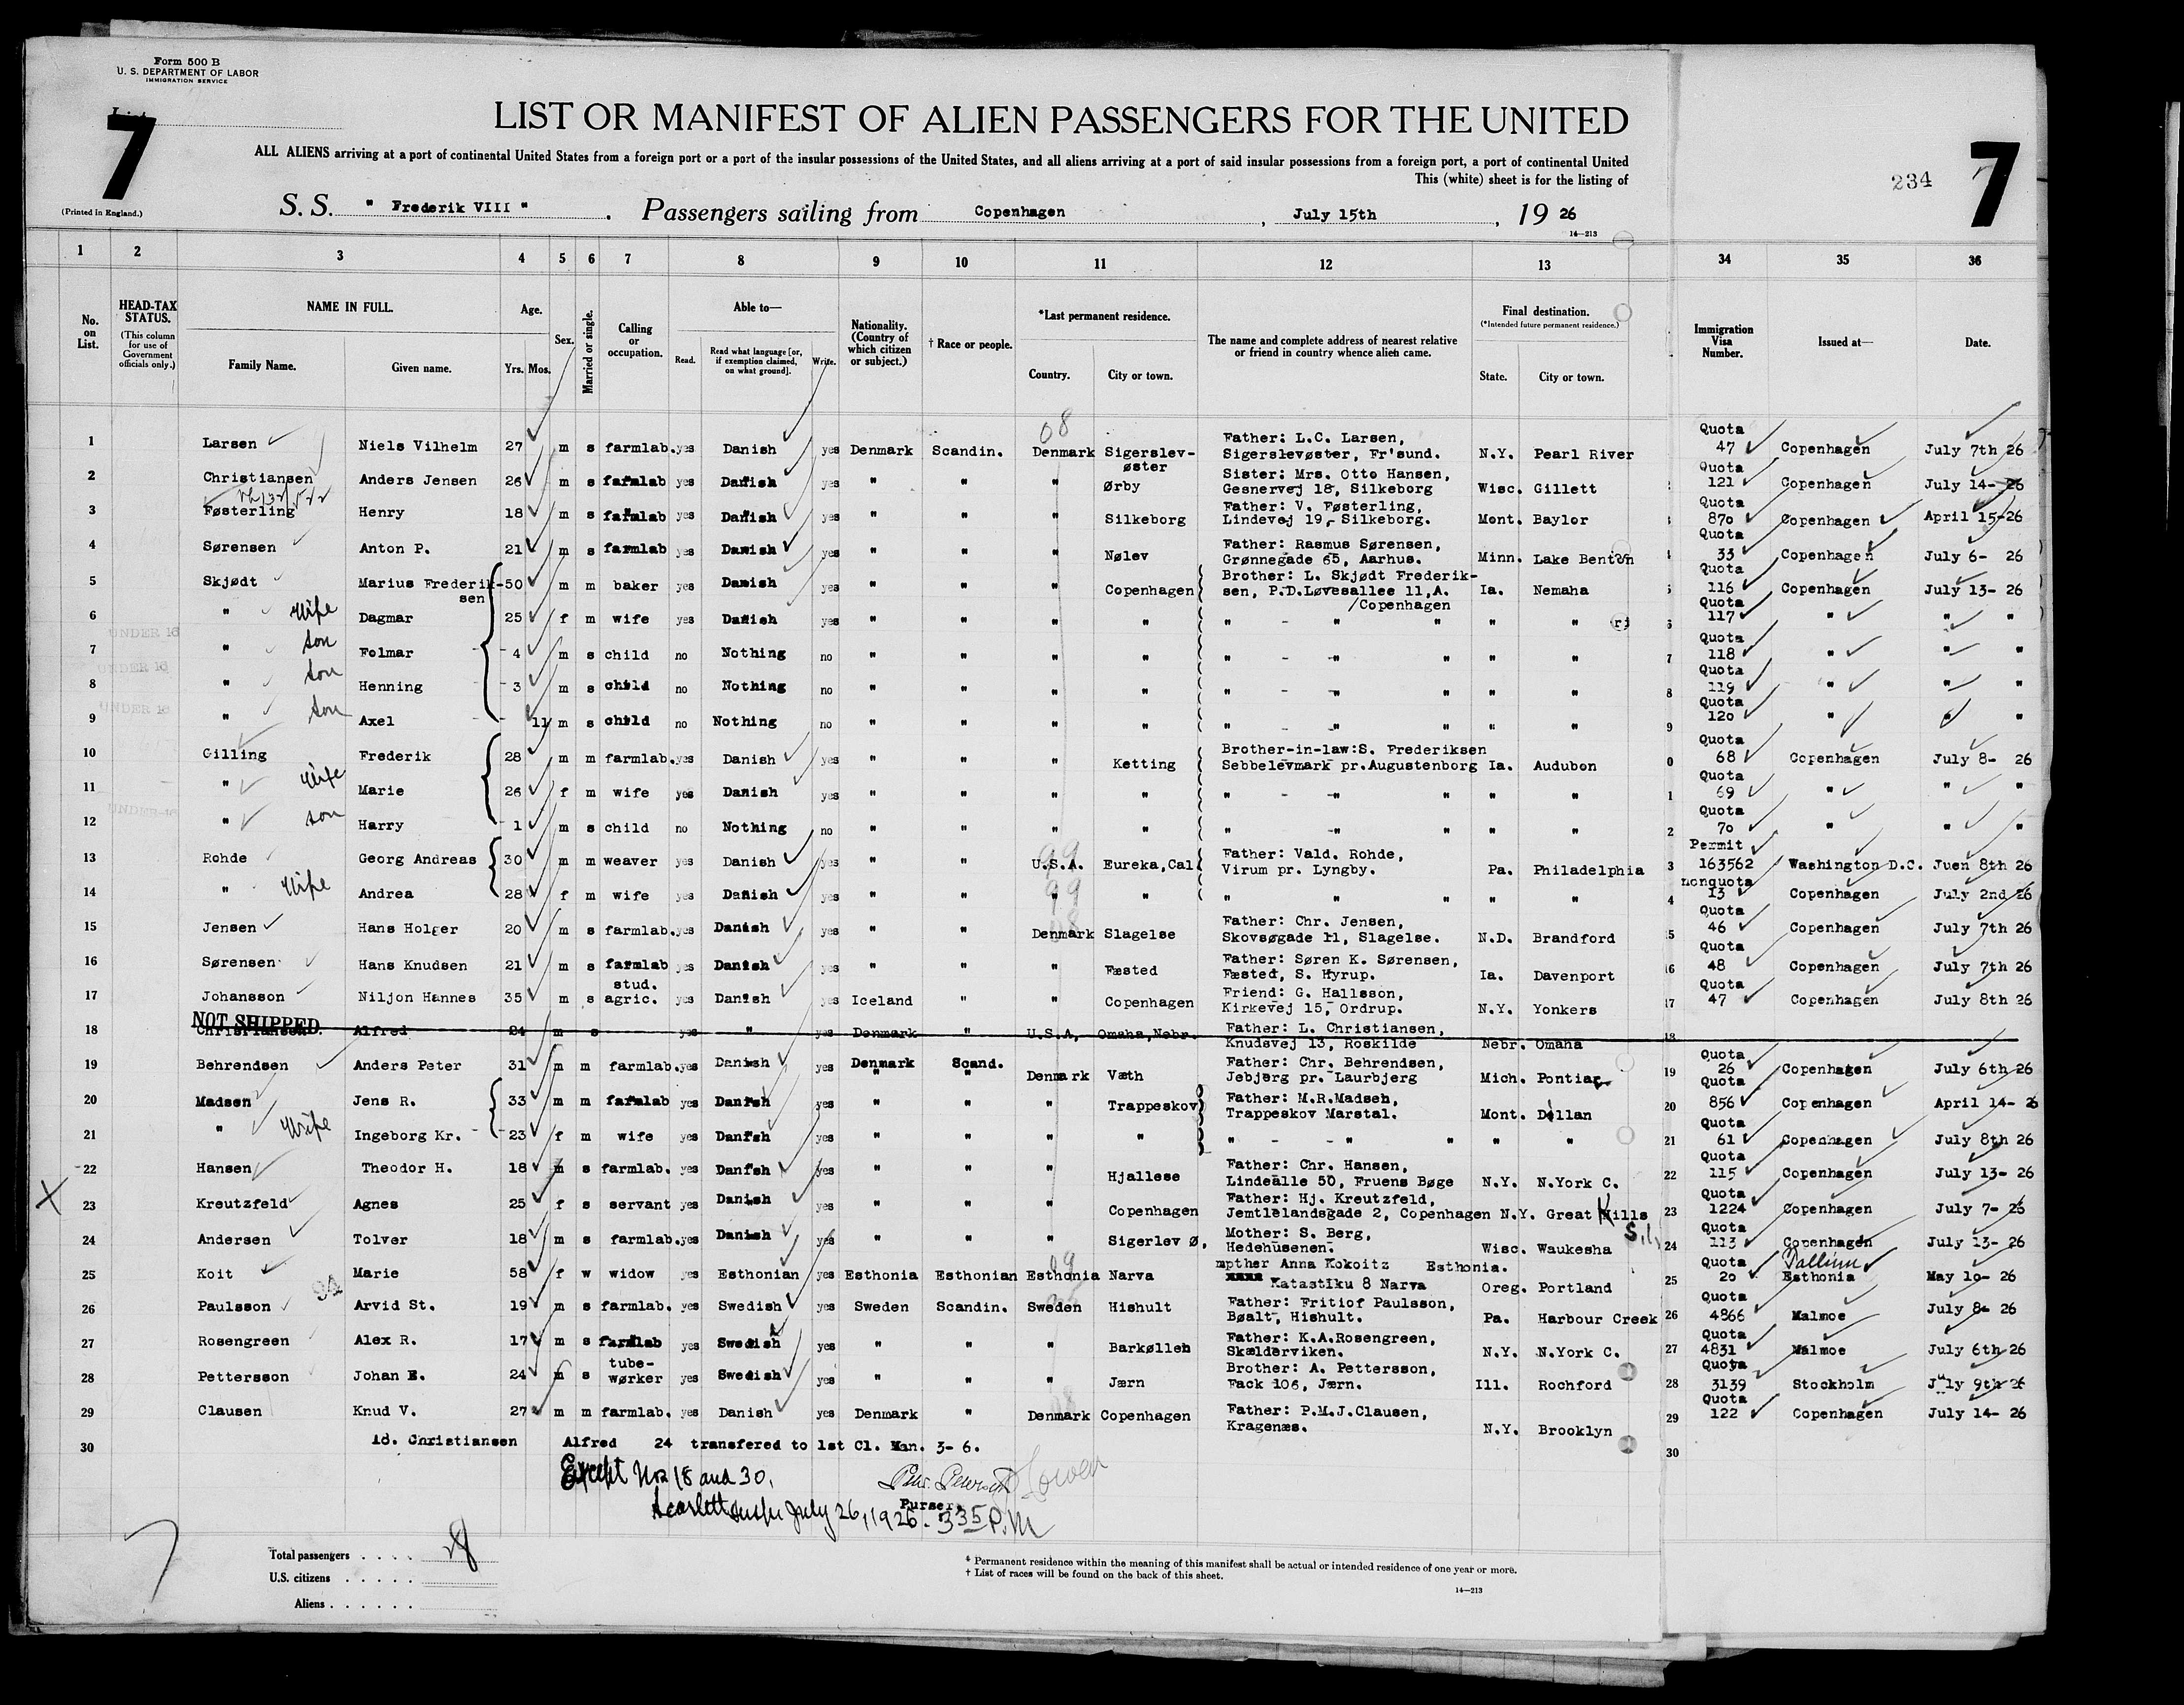 Form 500 B
U. S. DEPARTMENT OF LABOR
IMMIGRATION SERVICE
List
7
(Printed in England.)
LIST OR MANIFEST OF ALIEN PASSENGERS FOR THE UNITED
ALL ALIENS arriving at a port of continental United States from a foreign port or a port of the insular possessions of the United States, and all aliens arriving at a port of said insular possessions from a foreign port, a port of continental United
This (white) sheet is for the listing of
234 7
S. S. " Frederik VIII " . Passengers sailing from Copenhagen , July 15th , 19 26
14—213
1 2 3 4 5 6 7 8 9 10 11 12 13 34 35 36
No. on List. HEAD-TAX STATUS. (This column for use of Government officials only.) NAME IN FULL. Family Name. Given name. Age. Yrs. Mos. Sex. Married or single. Calling or occupation. Able to— Read. Read what language [or, if exemption claimed, on what ground]. Write. Nationality. (Country of which citizen or subject.) † Race or people. *Last permanent residence. Country. City or town. The name and complete address of nearest relative or friend in country whence alien came. Final destination. (*Intended future permanent residence.) State. City or town. Immigration Visa Number. Issued at— Date.
08
1 Larsen Niels Vilhelm 27 m s farmlab. yes Danish yes Denmark Scandin. Denmark Sigerslev-øster Father: L.C. Larsen, Sigerslevøster, Fr'sund. N.Y. Pearl River Quota 47 Copenhagen July 7th 26
2 Christiansen Anders Jensen 26 m s farmlab yes Danish yes " " " Ørby Sister: Mrs. Otto Hansen, Gesnervej 18, Silkeborg Wisc. Gillett Quota 121 Copenhagen July 14- 26
3 Føsterling Henry 18 m s farmlab yes Danish yes " " " Silkeborg Father: V. Føsterling, Lindevej 19,- Silkeborg. Mont. Baylor Quota 870 Copenhagen April 15-26
4 Sørensen Anton P. 21 m s farmlab yes Danish yes " " " Nølev Father: Rasmus Sørensen, Grønnegade 65, Aarhus. Minn. Lake Benton Quota 33 Copenhagen July 6- 26
5 Skjødt Marius Frederik-sen 50 m m baker yes Danish yes " " " Copenhagen Brother: L. Skjødt Frederik-sen, P.D.Løvesallee 11,A. /Copenhagen Ia. Nemaha Quota 116 Copenhagen July 13- 26
6 " Wife Dagmar 25 f m wife yes Danish yes " " " " " - " " " " Quota 117 " " "
UNDER 16
7 " son Folmar 4 m s child no Nothing no " " " " " - " " " " Quota 118 " " "
UNDER 16
8 " son Henning 3 m s child no Nothing no " " " " " - " " " " Quota 119 " " "
UNDER 16
9 " son Axel 11 m s child no Nothing no " " " " " - " " " " Quota 120 " " "
10 Gilling Frederik 28 m m farmlab. yes Danish yes " " " Ketting Brother-in-law:S. Frederiksen Sebbelevmark pr.Augustenborg Ia. Audubon Quota 68 Copenhagen July 8- 26
11 " Wife Marie 26 f m wife yes Danish yes " " " " " - " " " " Quota 69 " " "
UNDER 16
12 " son Harry 1 m s child no Nothing no " " " " " " " " " Quota 70 " " "
13 Rohde Georg Andreas 30 m m weaver yes Danish yes " " U.S.A. Eureka,Cal Father: Vald. Rohde, Virum pr. Lyngby. Pa. Philadelphia Permit 163562 Washington D.C. Juen 8th 26
14 " Wife Andrea 28 f m wife yes Danish yes " " " " " " " " " nonquota 13 Copenhagen July 2nd 26
15 Jensen Hans Holger 20 m s farmlab. yes Danish yes " " Denmark Slagelse Father: Chr. Jensen, Skovsøgade 11, Slagelse. N.D. Brandford Quota 46 Copenhagen July 7th 26
16 Sørensen Hans Knudsen 21 m s farmlab yes Danish yes " " " Fæsted Father: Søren K. Sørensen, Fæsted, S. Hyrup. Ia. Davenport Quota 48 Copenhagen July 7th 26
17 Johansson Niljon Hannes 35 m s stud. agric. yes Danish yes Iceland " " Copenhagen Friend: G. Hallsson, Kirkevej 15, Ordrup. N.Y. Yonkers Quota 47 Copenhagen July 8th 26
NOT SHIPPED.
18 Christiansen Alfred 24 m s yes " yes Denmark " U.S.A, Omaha,Nebr. Father: L. Christiansen, Knudsvej 13, Roskilde Nebr. Omaha 18
19 Behrendsen Anders Peter 31 m m farmlab. yes Danish yes Denmark Scand. Denmark Væth Father: Chr. Behrendsen, Jebjerg pr. Laurbjerg Mich. Pontiac 19 Quota 26 Copenhagen July 6th 26
20 Madsen Jens R. 33 m m farmlab yes Danish yes " " " Trappeskov Father: M.R.Madsen, Trappeskov Marstal. Mont. Dillan 20 Quota 856 Copenhagen April 14- 26
21 " Wife Ingeborg Kr. 23 f m wife yes Danish yes " " " " " - " " " " 21 Quota 61 Copenhagen July 8th 26
22 Hansen Theodor H. 18 m s farmlab. yes Danish yes " " " Hjallese Father: Chr. Hansen, Lindealle 50, Fruens Bøge N.Y. N.York C. 22 Quota 115 Copenhagen July 13- 26
X 23 Kreutzfeld Agnes 25 f s servant yes Danish yes " " " Copenhagen Father: Hj. Kreutzfeld, Jemtlelandsgade 2, Copenhagen N.Y. Great Kills S.I. 23 Quota 1224 Copenhagen July 7- 26
24 Andersen Tolver 18 m s farmlab. yes Danish yes " " " Sigerlev Ø, Mother: S. Berg, Hedehusenen. Wisc. Waukesha 24 Quota 113 Copenhagen July 13- 26
25 Koit Marie 58 f w widow yes Esthonian yes Esthonia Esthonian Esthonia Narva mother Anna Kokoitz Esthonia. Katastiku 8 Narva Oreg. Portland 25 Quota 20 Tallinn Esthonia May 10- 26
26 Paulsson Arvid St. 19 m s farmlab. yes Swedish yes Sweden Scandin. Sweden Hishult Father: Fritiof Paulsson, Bøalt, Hishult. Pa. Harbour Creek 26 Quota 4866 Malmoe July 8- 26
27 Rosengreen Alex R. 17 m s farmlab yes Swedish yes " " " Barkølleh Father: K.A.Rosengreen, Skælderviken. N.Y. N.York C. 27 Quota 4831 Malmoe July 6th 26
28 Pettersson Johan E. 24 m s tube-wørker yes Swedish yes " " " Jærn Brother: A. Pettersson, Fack 106, Jærn. Ill. Rochford 28 Quota 3139 Stockholm July 9th 26
29 Clausen Knud V. 27 m m farmlab. yes Danish yes Denmark " Denmark Copenhagen Father: P.M.J.Clausen, Kragenæs. N.Y. Brooklyn 29 Quota 122 Copenhagen July 14- 26
30 18. Christiansen Alfred 24 transfered to 1st Cl. Man. 3- 6. 30
Except Nos 18 and 30,
Purser.
July 26, 1926. 335 P.M
Total passengers . . . . 28
U.S. citizens . . . . .
Aliens . . . . . .
* Permanent residence within the meaning of this manifest shall be actual or intended residence of one year or more.
† List of races will be found on the back of this sheet.
14—213